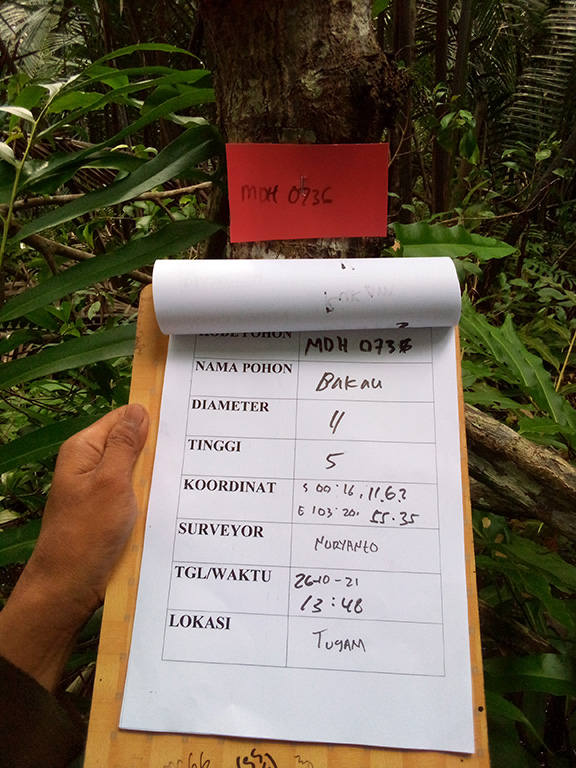 MDH 0736
KODE POHON MDH 0736
NAMA POHON Bakau
DIAMETER 11
TINGGI 5
KOORDINAT S 00:16.11.62
E 103:20.55.35
SURVEYOR NURYANTO
TGL/WAKTU 26-10-21
13:48
LOKASI TUGAM